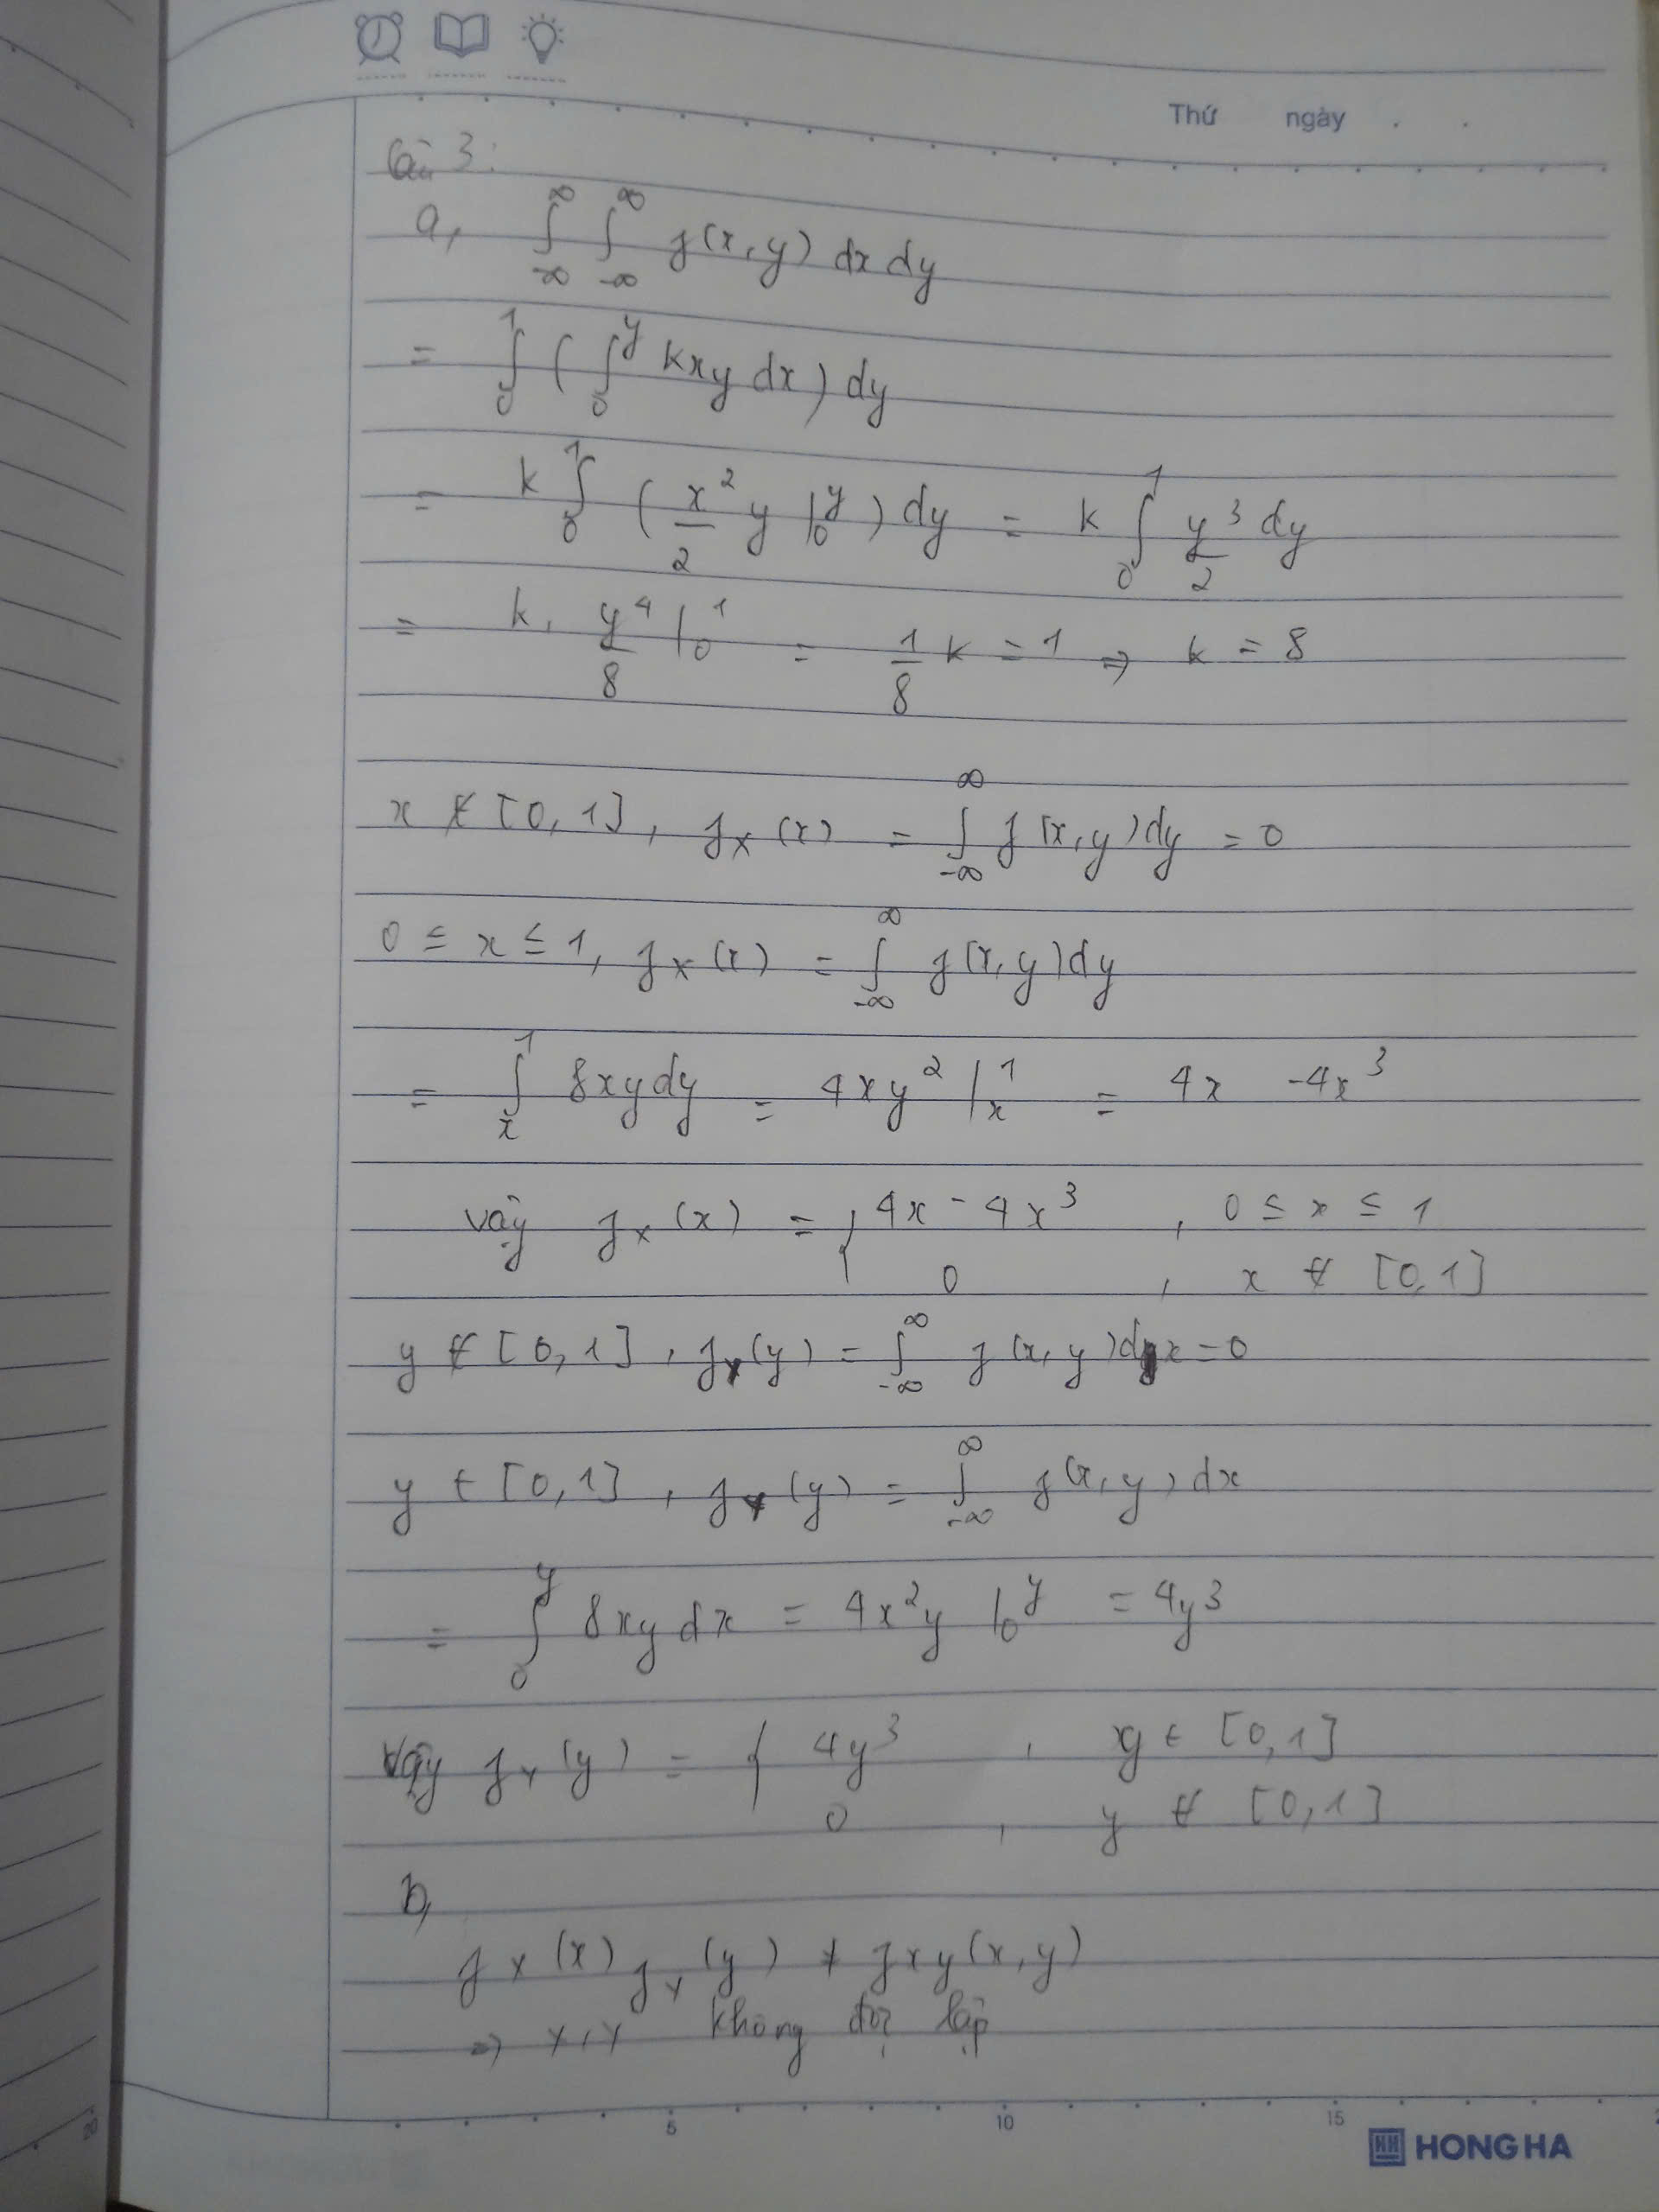 Thứ ngày . .
Câu 3:
a, ∫_{-∞}^{∞} ∫_{-∞}^{∞} f(x,y) dx dy
= ∫_0^1 ( ∫_0^y kxy dx ) dy
= k ∫_0^1 ( x²/2 y |_0^y ) dy = k ∫_0^1 y³/2 dy
= k. y⁴/8 |_0^1 = 1/8 k = 1 ⇒ k = 8
x ∉ [0,1], f_X(x) = ∫_{-∞}^{∞} f(x,y)dy = 0
0 ≤ x ≤ 1, f_X(x) = ∫_{-∞}^{∞} f(x,y)dy
= ∫_x^1 8xydy = 4xy² |_x^1 = 4x - 4x³
vậy f_X(x) = { 4x - 4x³ , 0 ≤ x ≤ 1
0 , x ∉ [0,1]
y ∉ [0,1], f_Y(y) = ∫_{-∞}^{∞} f(x,y)dx = 0
y ∈ [0,1], f_Y(y) = ∫_{-∞}^{∞} f(x,y)dx
= ∫_0^y 8xy dx = 4x²y |_0^y = 4y³
Vậy f_Y(y) = { 4y³ , y ∈ [0,1]
0 , y ∉ [0,1]
b,
f_X(x) f_Y(y) ≠ f_XY(x,y)
⇒ X,Y không độc lập
5 10 15
HONG HA